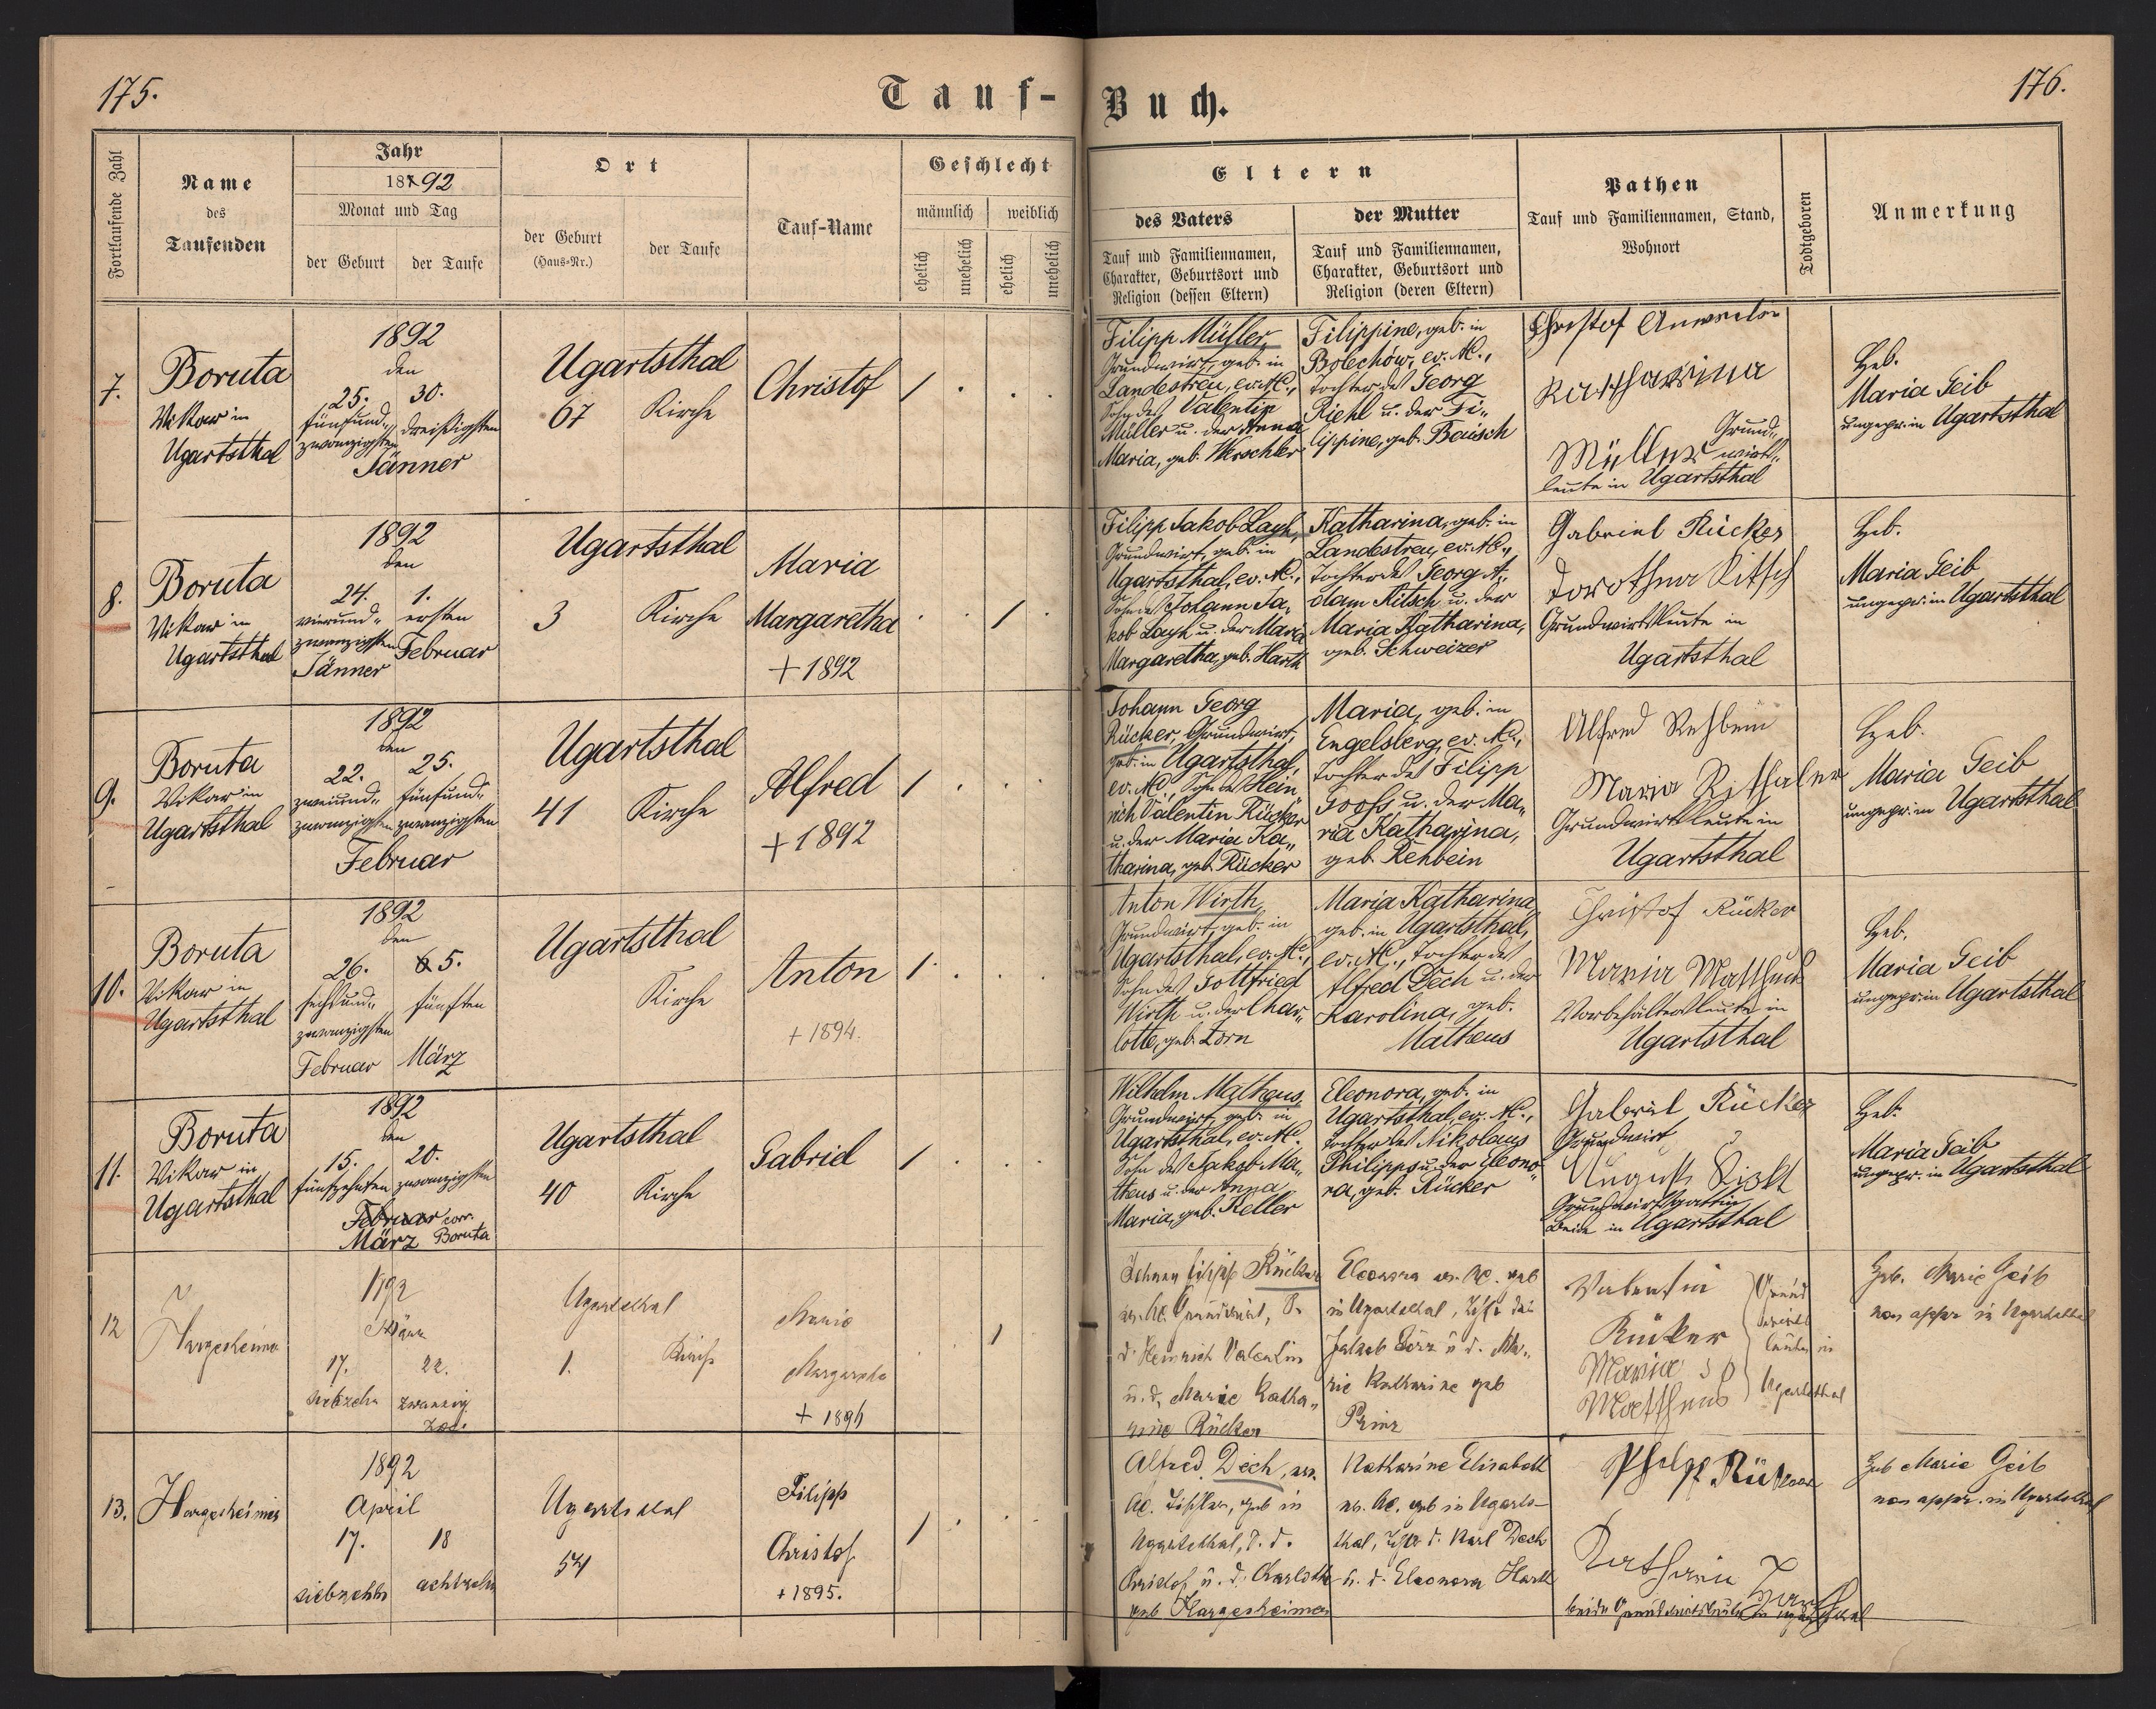 175.
Tauf-
Buch.
176.
Fortlaufende Zahl
Name
des
Taufenden
Jahr
1892
Monat und Tag
der Geburt
der Taufe
Ort
der Geburt
(Haus-Nr.)
der Taufe
Tauf-Name
Geschlecht
männlich
weiblich
ehelich
unehelich
ehelich
unehelich
Eltern
des Vaters
Tauf und Familiennamen,
Charakter, Geburtsort und
Religion (dessen Eltern)
der Mutter
Tauf und Familiennamen,
Charakter, Geburtsort und
Religion (deren Eltern)
Pathen
Tauf und Familiennamen, Stand,
Wohnort
Todtgeboren
Anmerkung
7.
Boruta
Vikar in
Ugartsthal
1892
den
25. 30.
fünfund„ dreißigsten
zwanzigsten
Jänner
Ugartsthal
67 Kirche
Christof
1 . . .
Filipp Müller,
Grundwirt, geb. in
Landestreu, ev. A.C.,
Sohn des Valentin
Müller u. der Anna
Maria, geb. Werschler
Filippine, geb. in
Bolechów, ev. A.C.,
Tochter des Georg
Riehl u. der Fi„
lippine, geb. Bäusch
Christof
Katharina
Müller Grund„
wirts„
leute in Ugartsthal
Heb.
Maria Geib
ungepr. in Ugartsthal
8.
Boruta
Vikar in
Ugartsthal
1892
den
24. 1.
vierund„ ersten
zwanzigsten Februar
Jänner
Ugartsthal
3 Kirche
Maria
Margaretha
+ 1892
. . 1 .
Filipp Jakob Layh,
Grundwirt, geb. in
Ugartsthal, ev. A.C.,
Sohn des Johann Ja„
kob Layh u. der Maria
Margaretha, geb. Harth
Katharina, geb. in
Landestreu, ev. A.C.,
Tochter des Georg A„
dam Kitsch u. der
Maria Katharina,
geb. Schweizer
Gabriel Rücker
Dorothea Kitsch
Grundwirtsleute in
Ugartsthal
Heb.
Maria Geib
ungepr. in Ugartsthal
9.
Boruta
Vikar in
Ugartsthal
1892
den
22. 25.
zweiund„ fünfund„
zwanzigsten zwanzigsten
Februar
Ugartsthal
41 Kirche
Alfred
+ 1892
1 . . .
Johann Georg
Rücker, Grundwirt,
geb. in Ugartsthal,
ev. A.C., Sohn des Hein„
rich Valentin Rücker
u. der Maria Ka„
tharina, geb. Rücker
Maria, geb. in
Engelsberg, ev. A.C.,
Tochter des Filipp
Gooß u. der Ma„
ria Katharina,
geb. Rehbein
Alfred Rehbein
Maria
Grundwirtsleute in
Ugartsthal
Heb.
Maria Geib
ungepr. in Ugartsthal
10.
Boruta
Vikar in
Ugartsthal
1892
den
26. 5.
sechsund„ fünften
zwanzigsten
Februar März
Ugartsthal
Kirche
Anton
+ 1894.
1 . . .
Anton Wirth,
Grundwirt, geb. in
Ugartsthal, ev. A.C.,
Sohn des Gottfried
Wirth u. der Char„
lotte, geb. Zorn
Maria Katharina,
geb. in Ugartsthal,
ev. A.C., Tochter des
Alfred Dech u. der
Karolina, geb.
Matheus
Christof Rücker
Maria
Vorbehaltersleute in
Ugartsthal
Heb.
Maria Geib
ungepr. in Ugartsthal
11.
Boruta
Vikar in
Ugartsthal
1892
den
15. 20.
fünfzehnten zwanzigsten
Februar corr.
März Boruta
Ugartsthal
40 Kirche
Gabriel
1 . . .
Wilhelm Matheus,
Grundwirt, geb. in
Ugartsthal, ev. A.C.
Sohn des Jakob Ma„
theus u. der Anna
Maria, geb. Keller
Eleonora, geb. in
Ugartsthal, ev. A.C.,
Tochter des Nikolaus
Philipps u. der Eleono„
ra, geb. Rücker
Gabriel Rücker
Grundwirt
Grundwirtsgattin
beide in Ugartsthal
Heb.
Maria Geib
ungepr. in Ugartsthal
12
Hargesheimer
1892
März
17. 22.
siebzehn zwanzig
zwei
Ugartsthal
1. Kirche
Maria
Margaretha
+ 1894
. . 1
Johann Filipp Rücker
ev. A.C. Grundwirt, S.
d. Heinrich Valentin
u. d. Marie Katha„
rine Rücker
Eleonora ev. A.C. geb
in Ugartsthal, Tochter des
Jakob Zorn u. d. Ma„
rie Katharine geb
Prinz
Valentin
Rücker
Maria
Mattheus
Grund
wirts
leute in
Ugartsthal
Heb. Marie Geib
non appr in Ugartsthal
13.
Hargesheimer
1892
April
17. 18
siebzehn achtzehn
Ugartsthal
54
Filipp
Christof
+ 1895.
1 . . .
Alfred Dech, ev.
A.C. Tischler, geb in
Ugartsthal, S. d.
Christof u. d. Charlotte
geb Hargesheimer
Katharine Elisabeth
ev. A.C. geb in Ugarts-
thal, Tochter d. Karl Dech
u. d. Eleonora Harth
Rücker
Katharina
beide Grundwirtsleute in Ugartsthal
Heb Marie Geib
non appr. in Ugartsthal